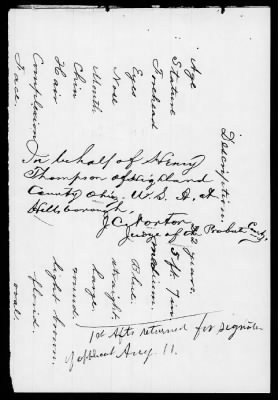 Description.
Age 22 years.
Stature 5 ft. 7 in
Forehead medium.
Eyes Blue.
Nose straight.
Mouth large.
Chin round
Hair light brown.
Complexion florid.
Face oval.
In behalf of Henry
Thompson of Highland
County Ohio, U.S.A. at
Hillsborough,
J.C. Norton
Judge of the Probate Court.
1st Afts returned for signature
of applicant Aug 11.